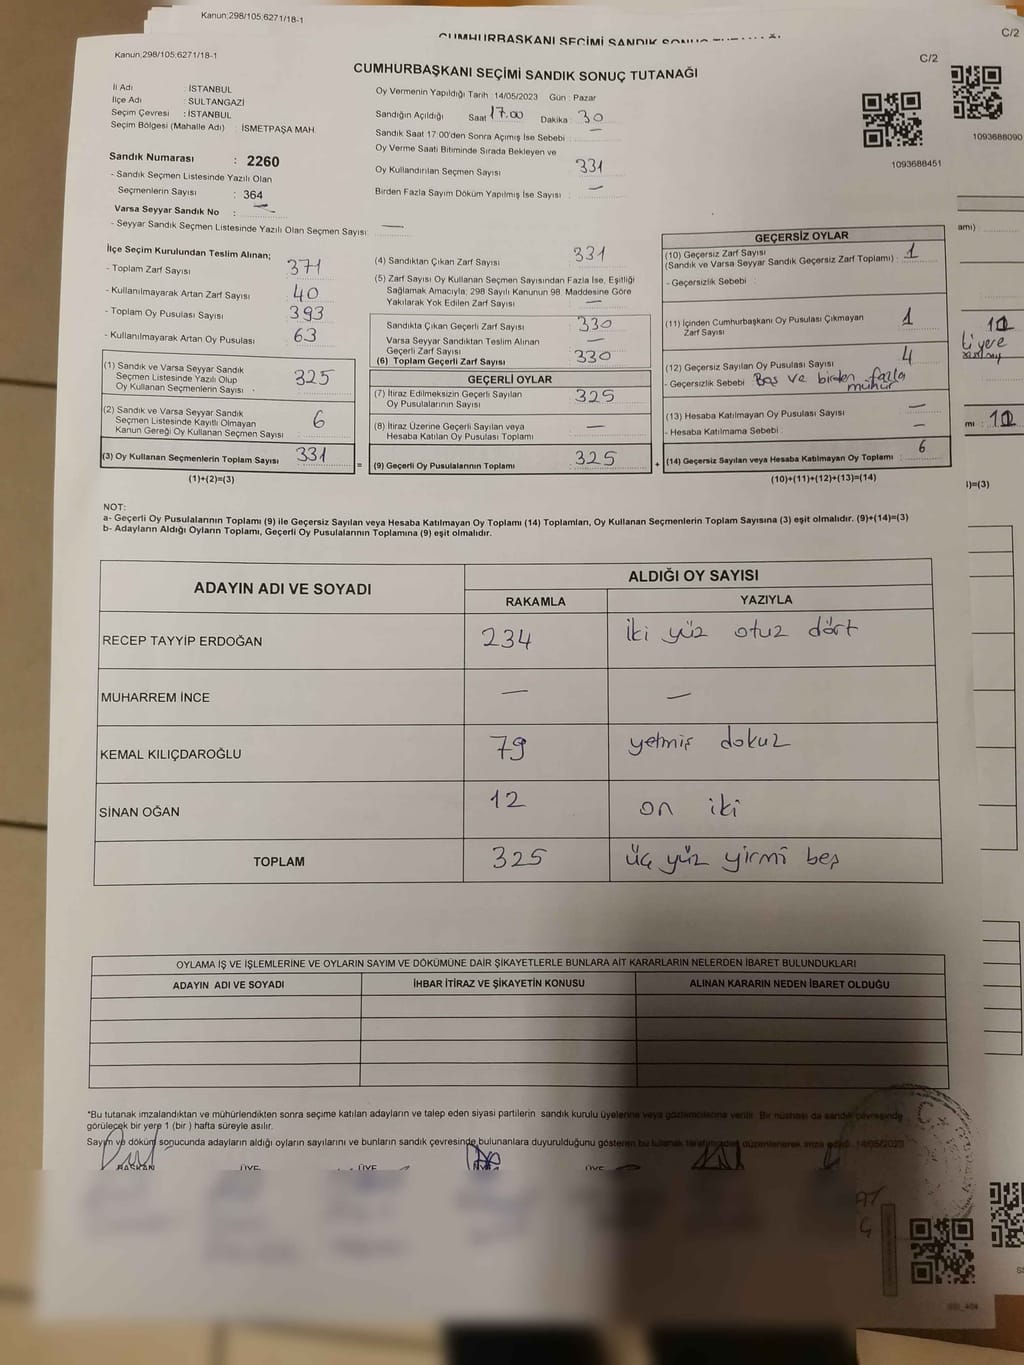 Kanun;298/105;6271/18-1
C/2
CUMHURBAŞKANI SEÇİMİ SANDIK
1093688090
Kanun;298/105;6271/18-1
C/2
CUMHURBAŞKANI SEÇİMİ SANDIK SONUÇ TUTANAĞI
1093688451
İl Adı : İSTANBUL
İlçe Adı : SULTANGAZİ
Seçim Çevresi : İSTANBUL
Seçim Bölgesi (Mahalle Adı) : İSMETPAŞA MAH.
Sandık Numarası : 2260
- Sandık Seçmen Listesinde Yazılı Olan
Seçmenlerin Sayısı : 364
Varsa Seyyar Sandık No : —
- Seyyar Sandık Seçmen Listesinde Yazılı Olan Seçmen Sayısı: —
Oy Vermenin Yapıldığı Tarih : 14/05/2023 Gün : Pazar
Sandığın Açıldığı Saat 17.00 Dakika : 30
Sandık Saat 17:00'den Sonra Açımış İse Sebebi : —
Oy Verme Saati Bitiminde Sırada Bekleyen ve
Oy Kullandırılan Seçmen Sayısı 331
Birden Fazla Sayım Döküm Yapılmış İse Sayısı : —
İlçe Seçim Kurulundan Teslim Alınan;
- Toplam Zarf Sayısı 371
- Kullanılmayarak Artan Zarf Sayısı 40
- Toplam Oy Pusulası Sayısı 393
- Kullanılmayarak Artan Oy Pusulası 63
(1) Sandık ve Varsa Seyyar Sandık
Seçmen Listesinde Yazılı Olup
Oy Kullanan Seçmenlerin Sayısı 325
(2) Sandık ve Varsa Seyyar Sandık
Seçmen Listesinde Kayıtlı Olmayan
Kanun Gereği Oy Kullanan Seçmen Sayısı 6
(3) Oy Kullanan Seçmenlerin Toplam Sayısı 331
(1)+(2)=(3)
(4) Sandıktan Çıkan Zarf Sayısı 331
(5) Zarf Sayısı Oy Kullanan Seçmen Sayısından Fazla İse, Eşitliği
Sağlamak Amacıyla; 298 Sayılı Kanunun 98. Maddesine Göre
Yakılarak Yok Edilen Zarf Sayısı —
Sandıkta Çıkan Geçerli Zarf Sayısı 330
Varsa Seyyar Sandıktan Teslim Alınan
Geçerli Zarf Sayısı —
(6) Toplam Geçerli Zarf Sayısı 330
GEÇERLİ OYLAR
(7) İtiraz Edilmeksizin Geçerli Sayılan
Oy Pusulalarının Sayısı 325
(8) İtiraz Üzerine Geçerli Sayılan veya
Hesaba Katılan Oy Pusulası Toplamı —
= (9) Geçerli Oy Pusulalarının Toplamı 325
GEÇERSİZ OYLAR
(10) Geçersiz Zarf Sayısı
(Sandık ve Varsa Seyyar Sandık Geçersiz Zarf Toplamı) : 1
- Geçersizlik Sebebi :
(11) İçinden Cumhurbaşkanı Oy Pusulası Çıkmayan
Zarf Sayısı 1
(12) Geçersiz Sayılan Oy Pusulası Sayısı 4
- Geçersizlik Sebebi : Boş ve birden fazla
mühür
(13) Hesaba Katılmayan Oy Pusulası Sayısı —
- Hesaba Katılmama Sebebi : —
+ (14) Geçersiz Sayılan veya Hesaba Katılmayan Oy Toplamı : 6
(10)+(11)+(12)+(13)=(14)
NOT:
a- Geçerli Oy Pusulalarının Toplamı (9) ile Geçersiz Sayılan veya Hesaba Katılmayan Oy Toplamı (14) Toplamları, Oy Kullanan Seçmenlerin Toplam Sayısına (3) eşit olmalıdır. (9)+(14)=(3)
b- Adayların Aldığı Oyların Toplamı, Geçerli Oy Pusulalarının Toplamına (9) eşit olmalıdır.
ADAYIN ADI VE SOYADI ALDIĞI OY SAYISI
RAKAMLA YAZIYLA
RECEP TAYYİP ERDOĞAN 234 İki yüz otuz dört
MUHARREM İNCE — —
KEMAL KILIÇDAROĞLU 79 yetmiş dokuz
SİNAN OĞAN 12 on iki
TOPLAM 325 üç yüz yirmi beş
OYLAMA İŞ VE İŞLEMLERİNE VE OYLARIN SAYIM VE DÖKÜMÜNE DAİR ŞİKAYETLERLE BUNLARA AİT KARARLARIN NELERDEN İBARET BULUNDUKLARI
ADAYIN ADI VE SOYADI İHBAR İTİRAZ VE ŞİKAYETİN KONUSU ALINAN KARARIN NEDEN İBARET OLDUĞU
*Bu tutanak imzalandıktan ve mühürlendikten sonra seçime katılan adayların ve talep eden siyasi partilerin sandık kurulu üyelerine veya gözlemcilerine verilir. Bir nüshası da sandık çevresinde
görülecek bir yere 1 (bir ) hafta süreyle asılır.
Sayım ve döküm sonucunda adayların aldığı oyların sayılarını ve bunların sandık çevresinde bulunanlara duyurulduğunu gösteren bu tutanak tarafımızdan düzenlenerek imza edildi. 14/05/2023
BAŞKAN ÜYE ÜYE ÜYE ÜYE